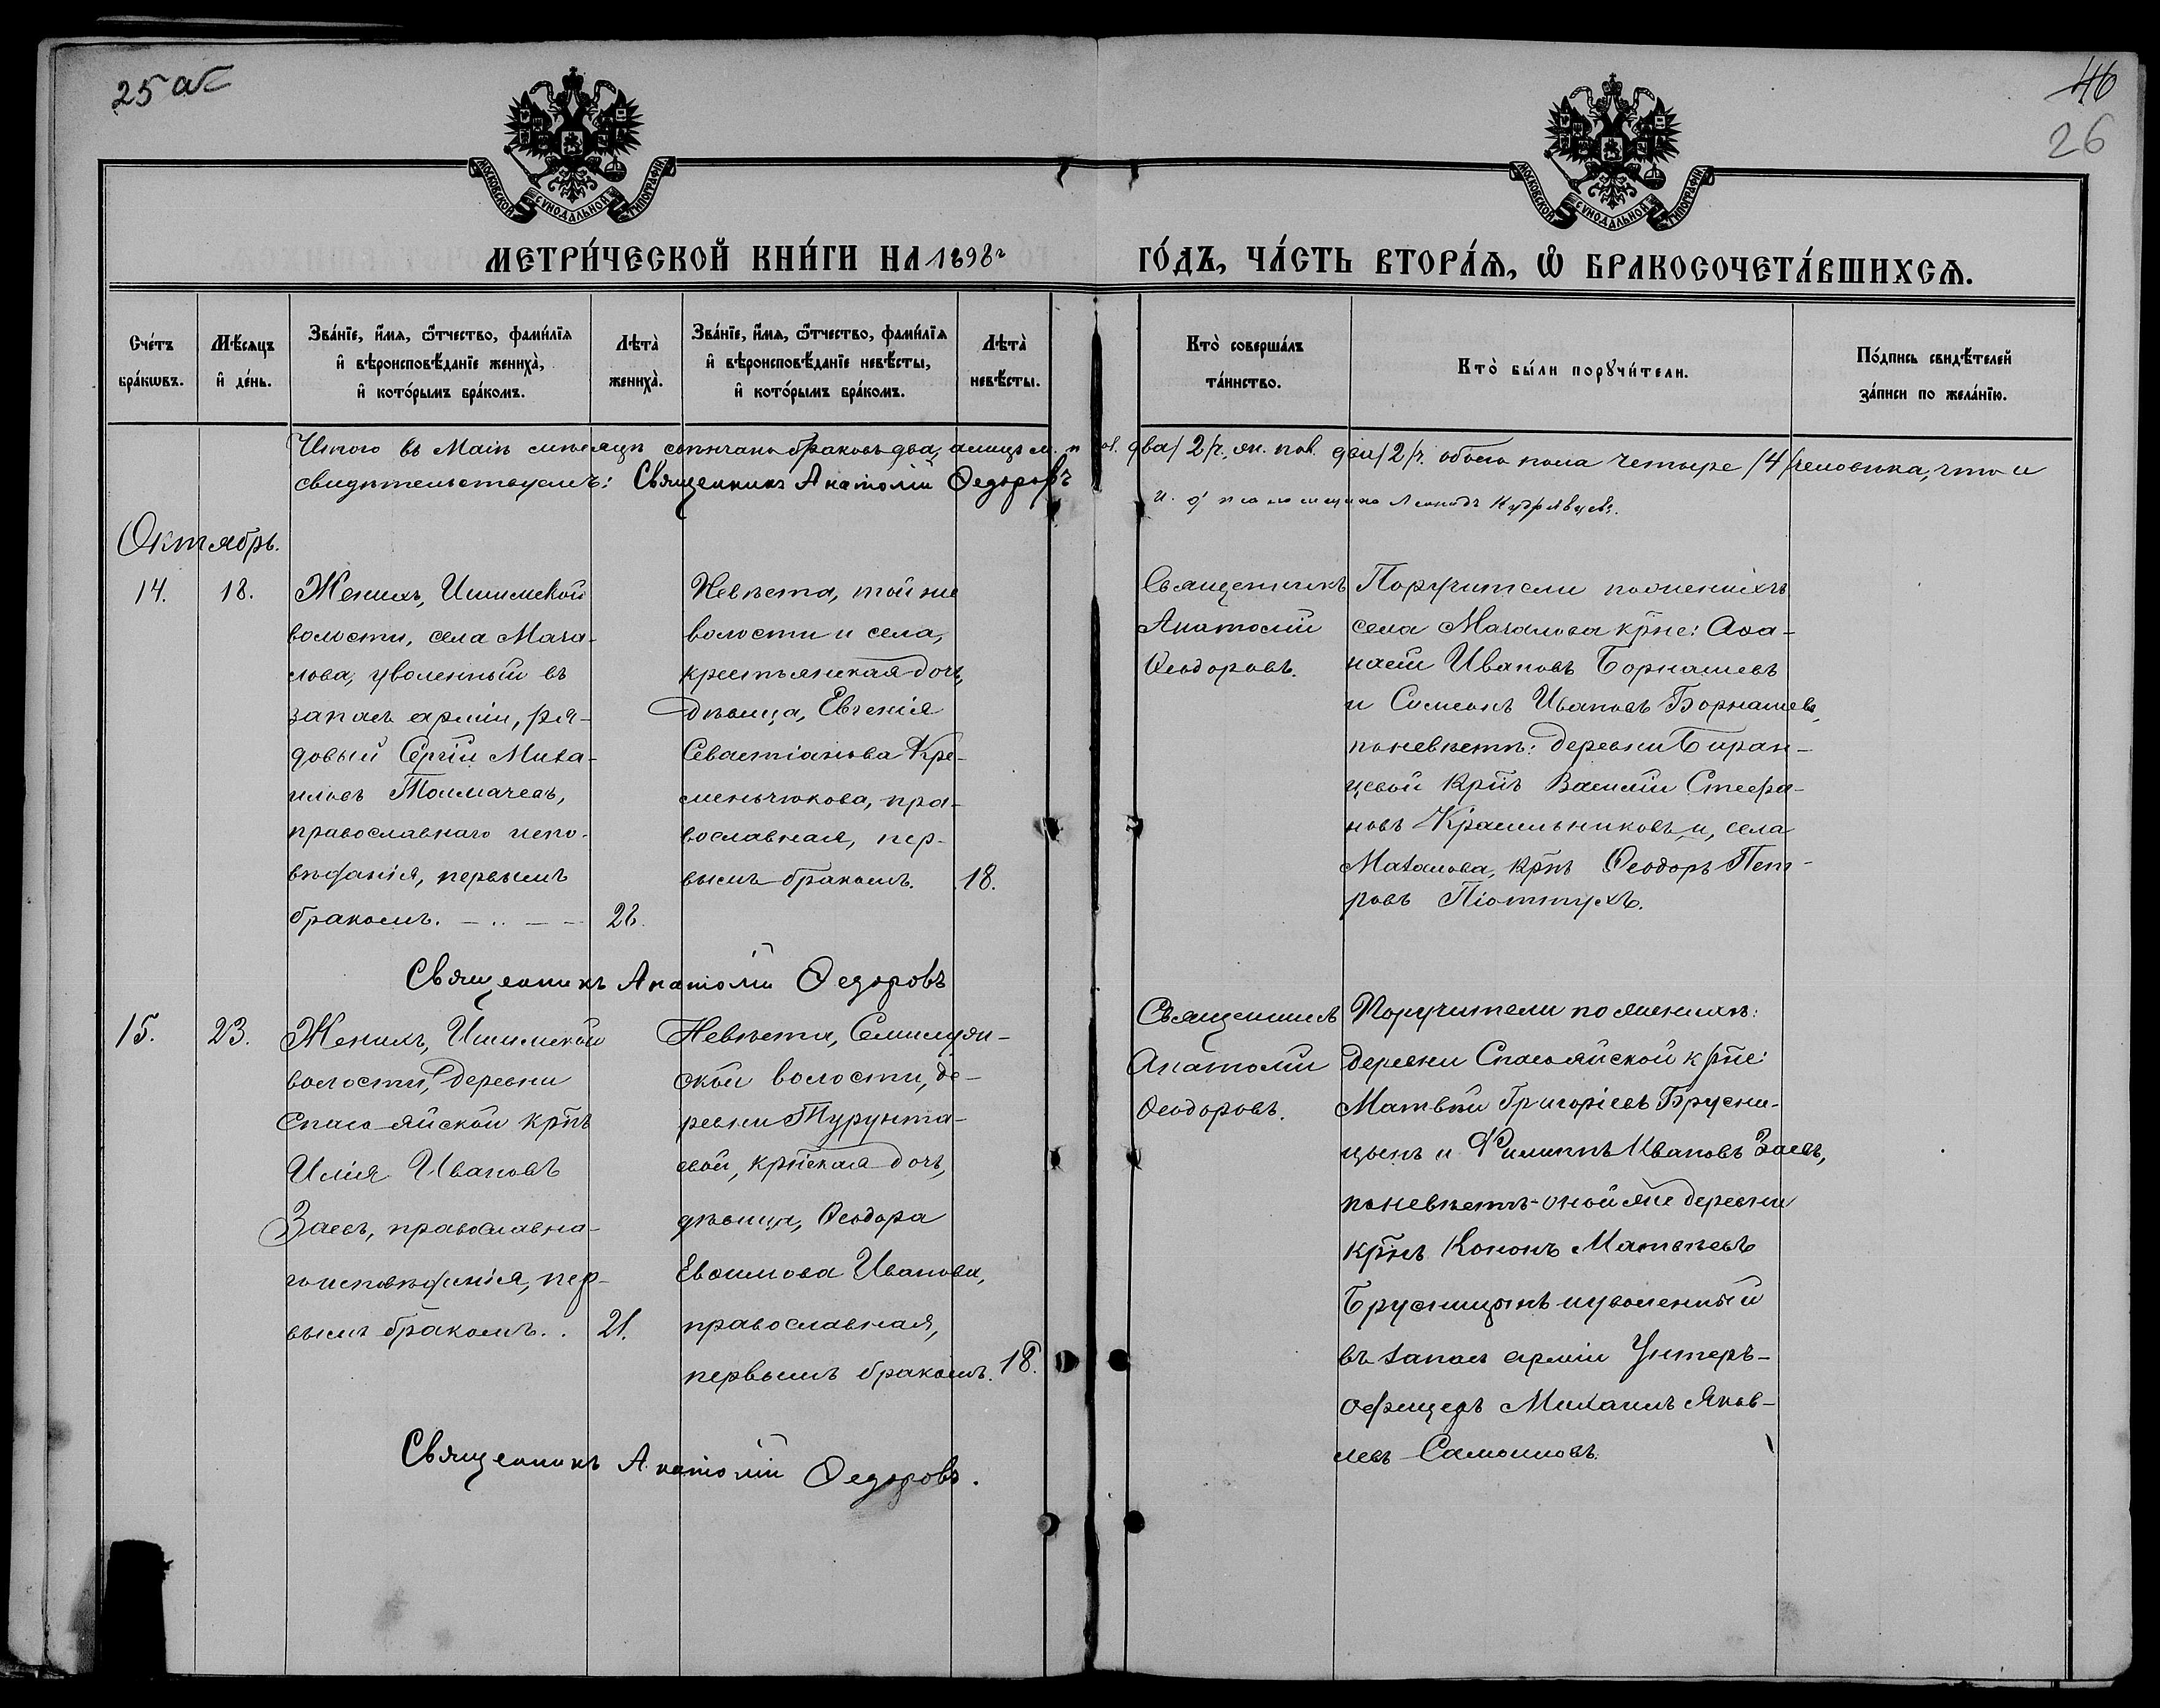 25 об
46
26
МОСКОВСКОЙ СѴНОДАЛЬНОЙ ТИПОГРАФІИ
МОСКОВСКОЙ СѴНОДАЛЬНОЙ ТИПОГРАФІИ
МЕТРИ́ЧЕСКОЙ КНИ́ГИ НА 1898 г
ГО́ДЪ, ЧА́СТЬ ВТОРА́Ѧ, Ѡ БРАКОСОЧЕТА́ВШИХСѦ.
Сче́тъ
бра́кωвъ.
Мѣ́сяцъ
и҆ де́нь.
Зва́нїе, и҆́мя, ѻ҆́тчество, фами́лїя
и҆ вѣроисповѣ́данїе жениха̀,
и҆ кото́рымъ бра́комъ.
Лѣта̀
жениха̀.
Зва́нїе, и҆́мя, ѻ҆́тчество, фами́лїя
и҆ вѣроисповѣ́данїе невѣ́сты,
и҆ кото́рымъ бра́комъ.
Лѣта̀
невѣ́сты.
Кто̀ соверша́лъ
та́инство.
Кто̀ бы́ли порꙋчи́тели.
По́дпись свидѣ́телей
за́писи по жела́нїю.
Итого въ Маѣ мѣсяцѣ совѣнчано браковъ два, а лицъ м. пол. два /2/ г., ж. пол. два /2/ г. обоего пола четыре /4/ человѣка, что и
свидѣтельствуемъ: Священникъ Анатолій Ѳедоровъ
и. д. псаломщика Леонидъ Кудрявцевъ.
Октябрь.
14.
18.
Женихъ, Ишимской
волости, села Мача-
лова, уволенный въ
запасъ арміи, ря-
довый Сергій Миха-
иловъ Толмачевъ,
православнаго испо-
вѣданія, первымъ
бракомъ.
28.
Невѣста, той же
волости и села,
крестьянская дочь,
дѣвица, Евгенія
Севастіанова Кре-
меньчюкова, пра-
вославная, пер-
вымъ бракомъ.
18.
Священникъ
Анатолій
Ѳеодоровъ.
Поручители по женихѣ
села Мачалова крне: Аѳа-
насій Ивановъ Борнашевъ
и Симеонъ Ивановъ Борнашевъ,
по невѣстѣ: деревни Биран-
цевой крнъ Василій Стефа-
новъ Красильниковъ и, села
Мачалова, крнъ Ѳеодоръ Пет-
ровъ Піоттухъ.
Священникъ Анатолій Ѳедоровъ
15.
23.
Женихъ, Ишимской
волости, деревни
Спасо-яйской крнъ
Илія Ивановъ
Заевъ, православна-
го исповѣданія, пер-
вымъ бракомъ.
21.
Невѣста, Семилуж-
ской волости, де-
ревни Турунта-
евой, крнская дочь,
дѣвица, Ѳеодора
Евѳимова Иванова,
православная,
первымъ бракомъ.
18.
Священникъ
Анатолій
Ѳеодоровъ.
Поручители по женихѣ:
деревни Спасо-яйской крне:
Матвѣй Григоріевъ Брусни-
цынъ и Филиппъ Ивановъ Заевъ,
по невѣстѣ-оной же деревни
крнъ Кононъ Матвѣевъ
Брусницынъ и уволенный
въ запасъ арміи Унтеръ-
офицеръ Михаилъ Яков-
левъ Самоиловъ.
Священникъ Анатолій Ѳедоровъ.